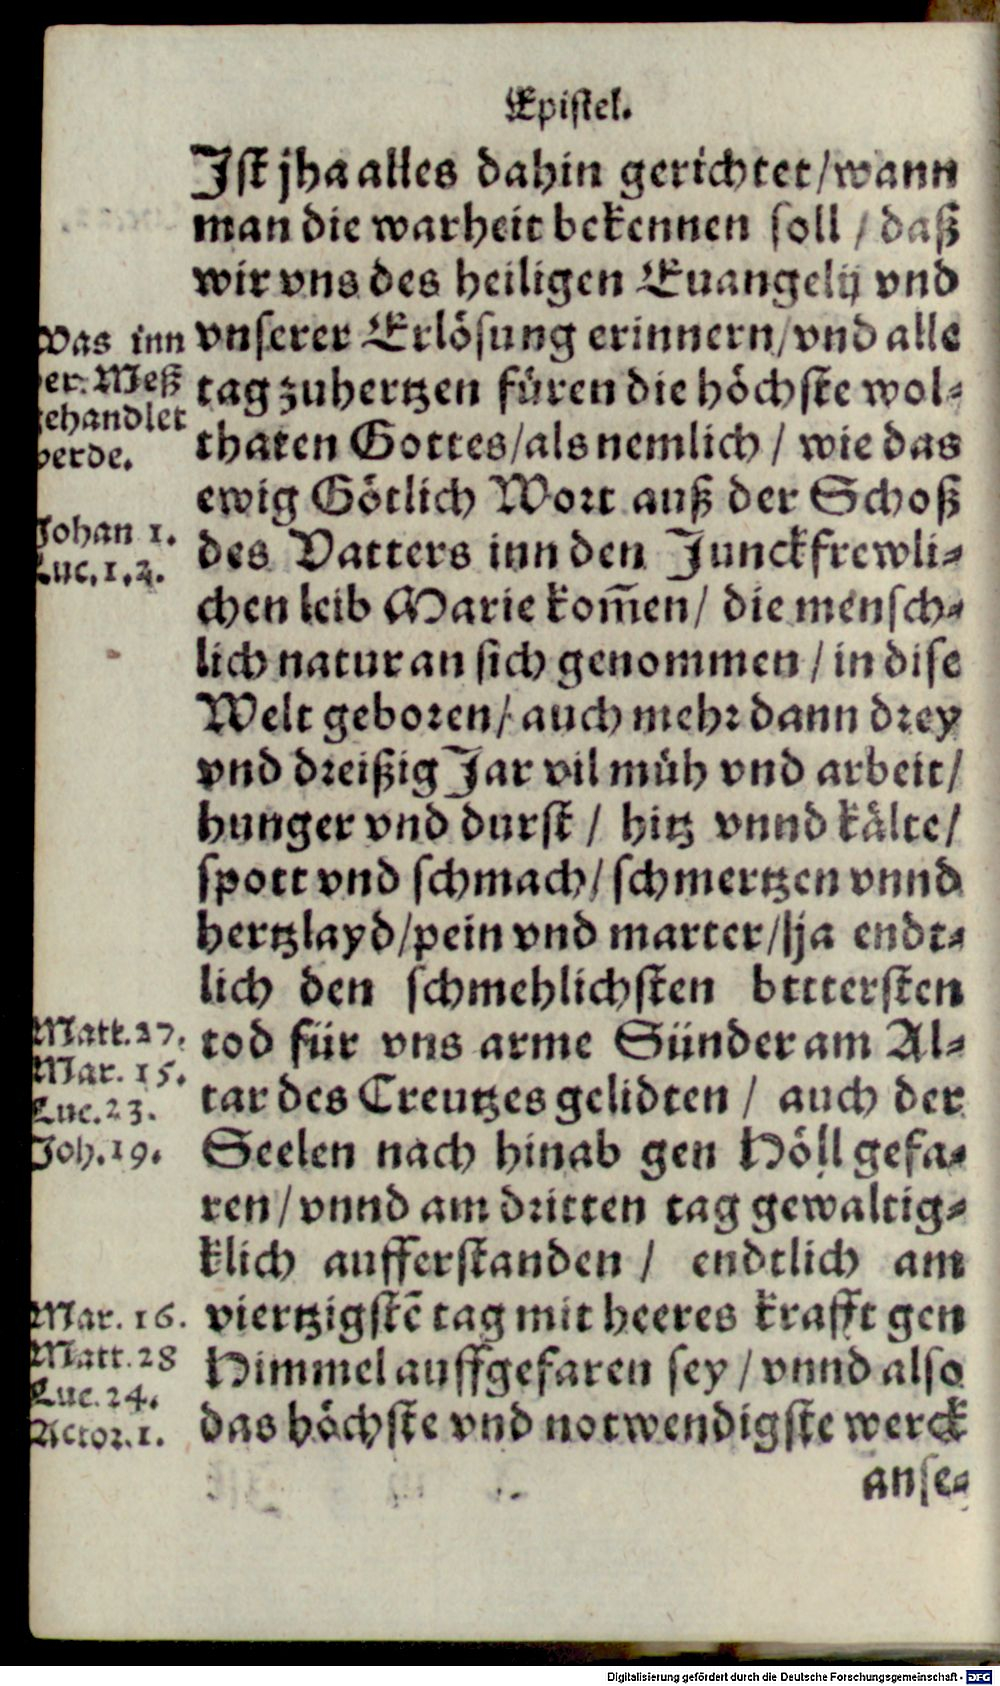 Epistel.
Ist jha alles dahin gerichtet/wann
man die warheit bekennen soll / daß
wir vns des heiligen Euangelij vnd
vnserer Erlösung erinnern/vnd alle
tag zuhertzen füren die höchste wol-
thaten Gottes/als nemlich / wie das
ewig Götlich Wort auß der Schoß
des Vatters inn den Junckfrewli-
chen leib Marie kom̃en/ die mensch-
lich natur an sich genommen / in dise
Welt geboren/ auch mehr dann drey
vnd dreißig Jar vil müh vnd arbeit/
hunger vnd durst / hitz vnnd kälte/
spott vnd schmach/ schmertzen vnnd
hertzlayd/pein vnd marter/ja endt-
lich den schmehlichsten bittersten
tod für vns arme Sünder am Al-
tar des Creutzes gelidten / auch der
Seelen nach hinab gen Höll gefa-
ren/ vnnd am dritten tag gewaltig-
klich aufferstanden / endtlich am
viertzigstẽ tag mit heeres krafft gen
Himmel auffgefaren sey / vnnd also
das höchste vnd notwendigste werck
anse-
Was inn
er Meß
ehandlet
erde.
Johan 1.
Luc. 1.2.
Matt. 27.
Mar. 15.
Luc. 23.
Joh. 19.
Mar. 16.
Matt. 28
Luc. 24.
Actor. 1.
Digitalisierung gefördert durch die Deutsche Forschungsgemeinschaft - DFG